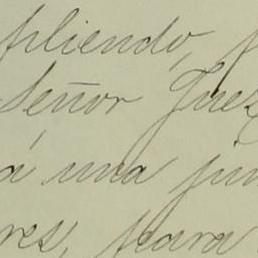 pliendo,
Señor Juez
á una jun
res, para